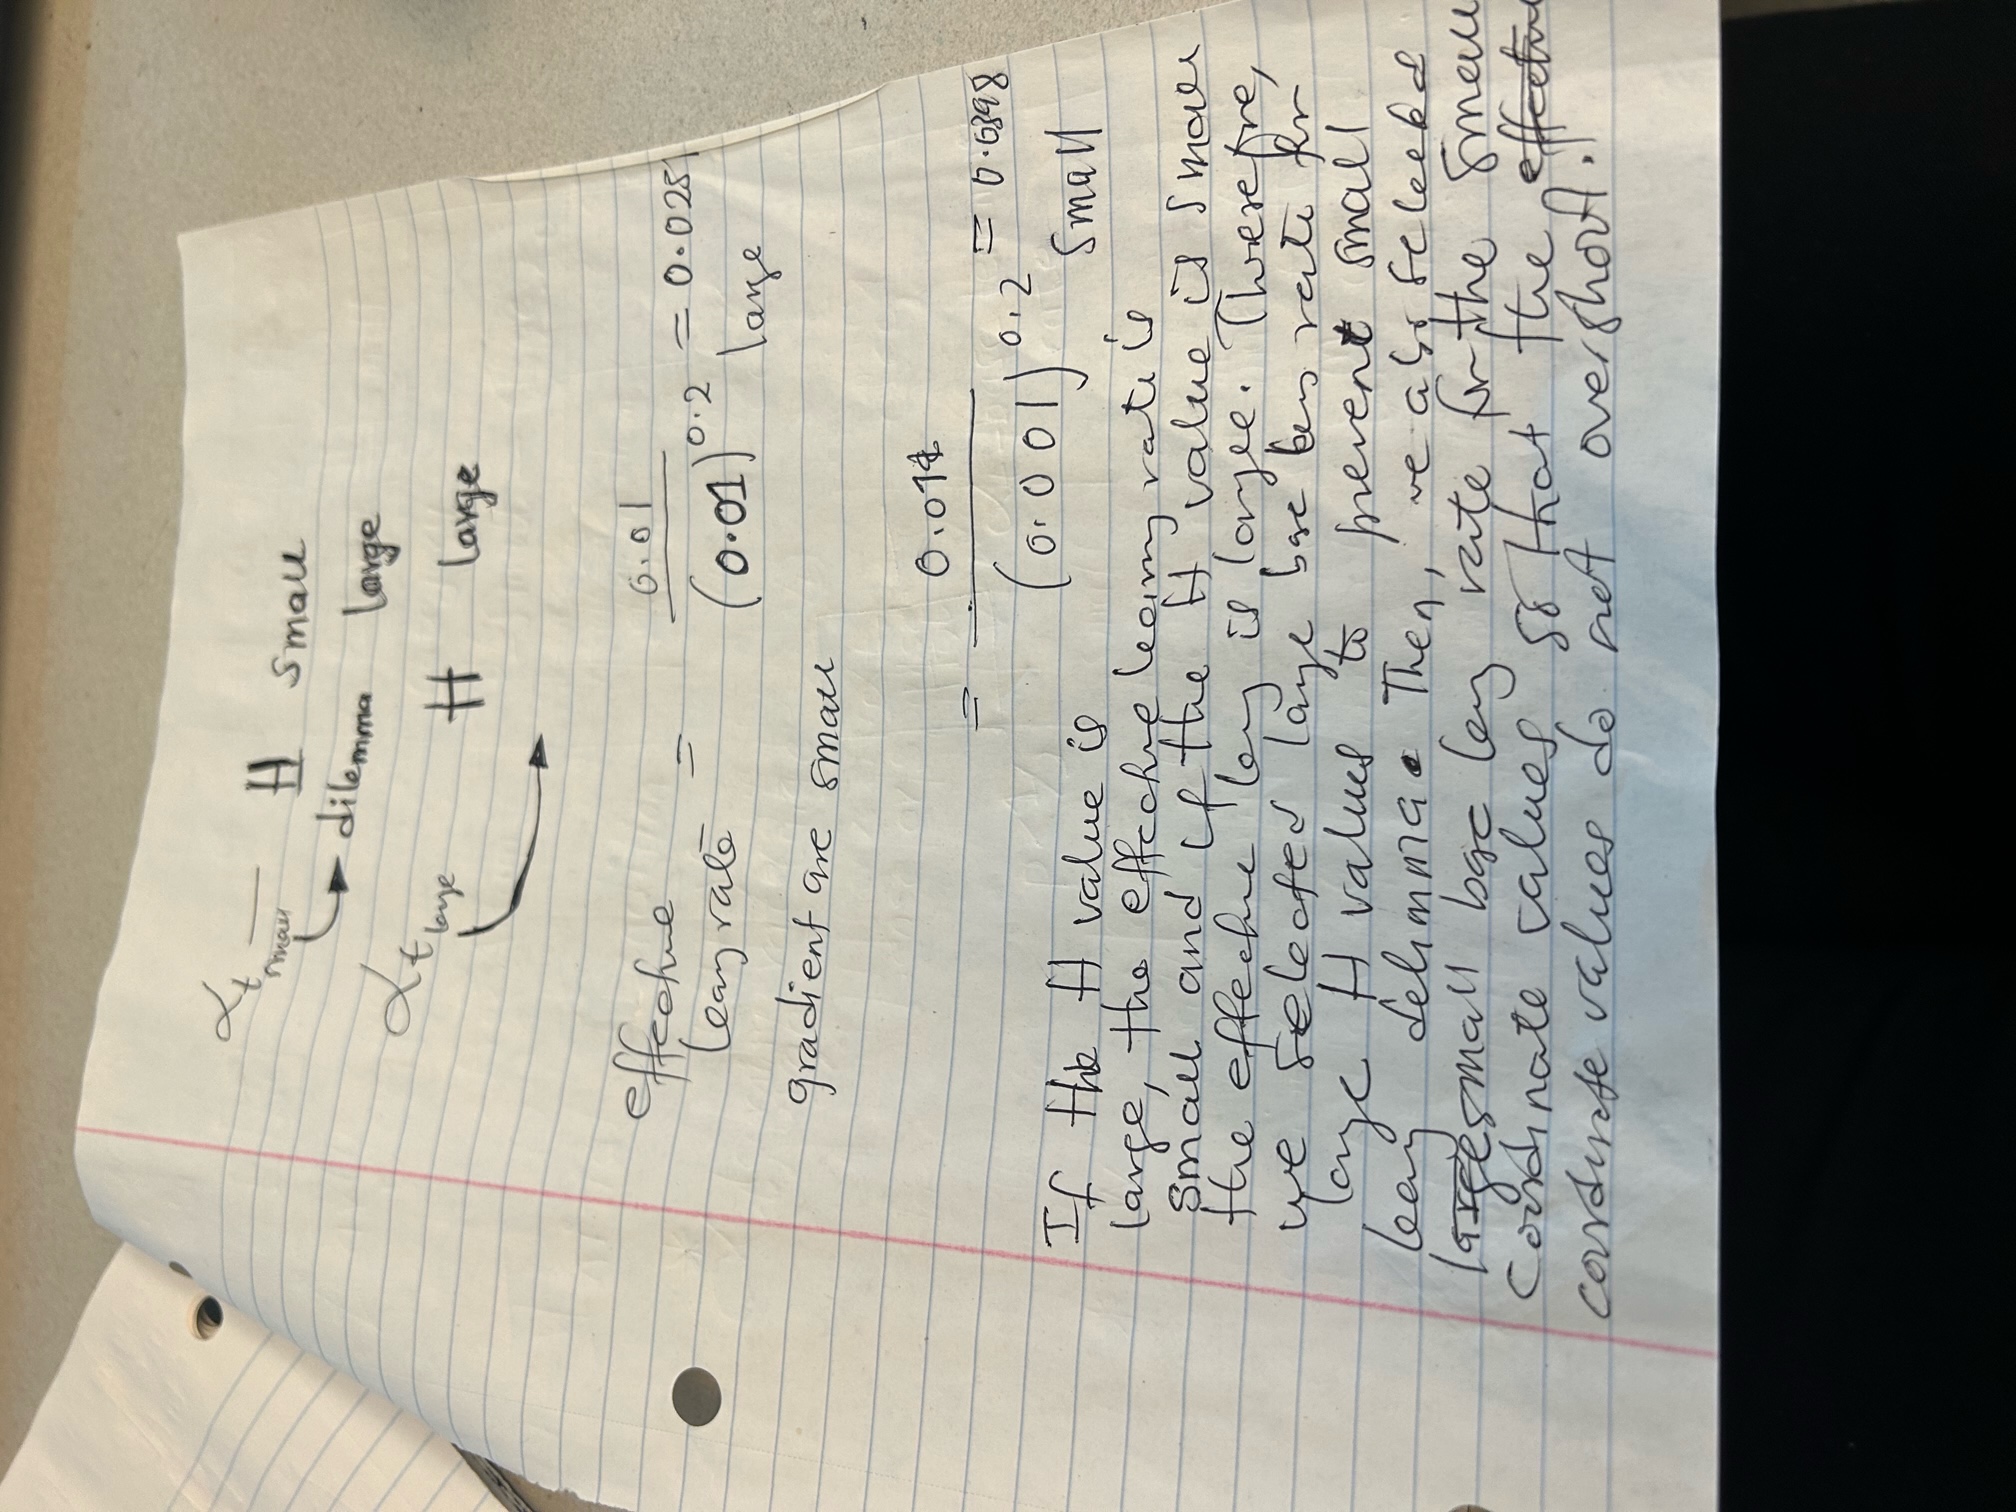 αt small — H small
dilemma large
αt large H large
effective learng rate = 0.01 / (0.01)^0.2 = 0.0251
large
gradient are small
= 0.01 / (0.001)^0.2 = 0.0398
small
If the H value is
large, the effective learning rate is
small and if the H value is small
the effective leng is large. Therefore,
we selected large base leng rate for
large H values to prevent small
leang delimma. Then, we also selected
large small base leng rate for the small
coordinate values so that the effective
coordinate values do not overshoot.